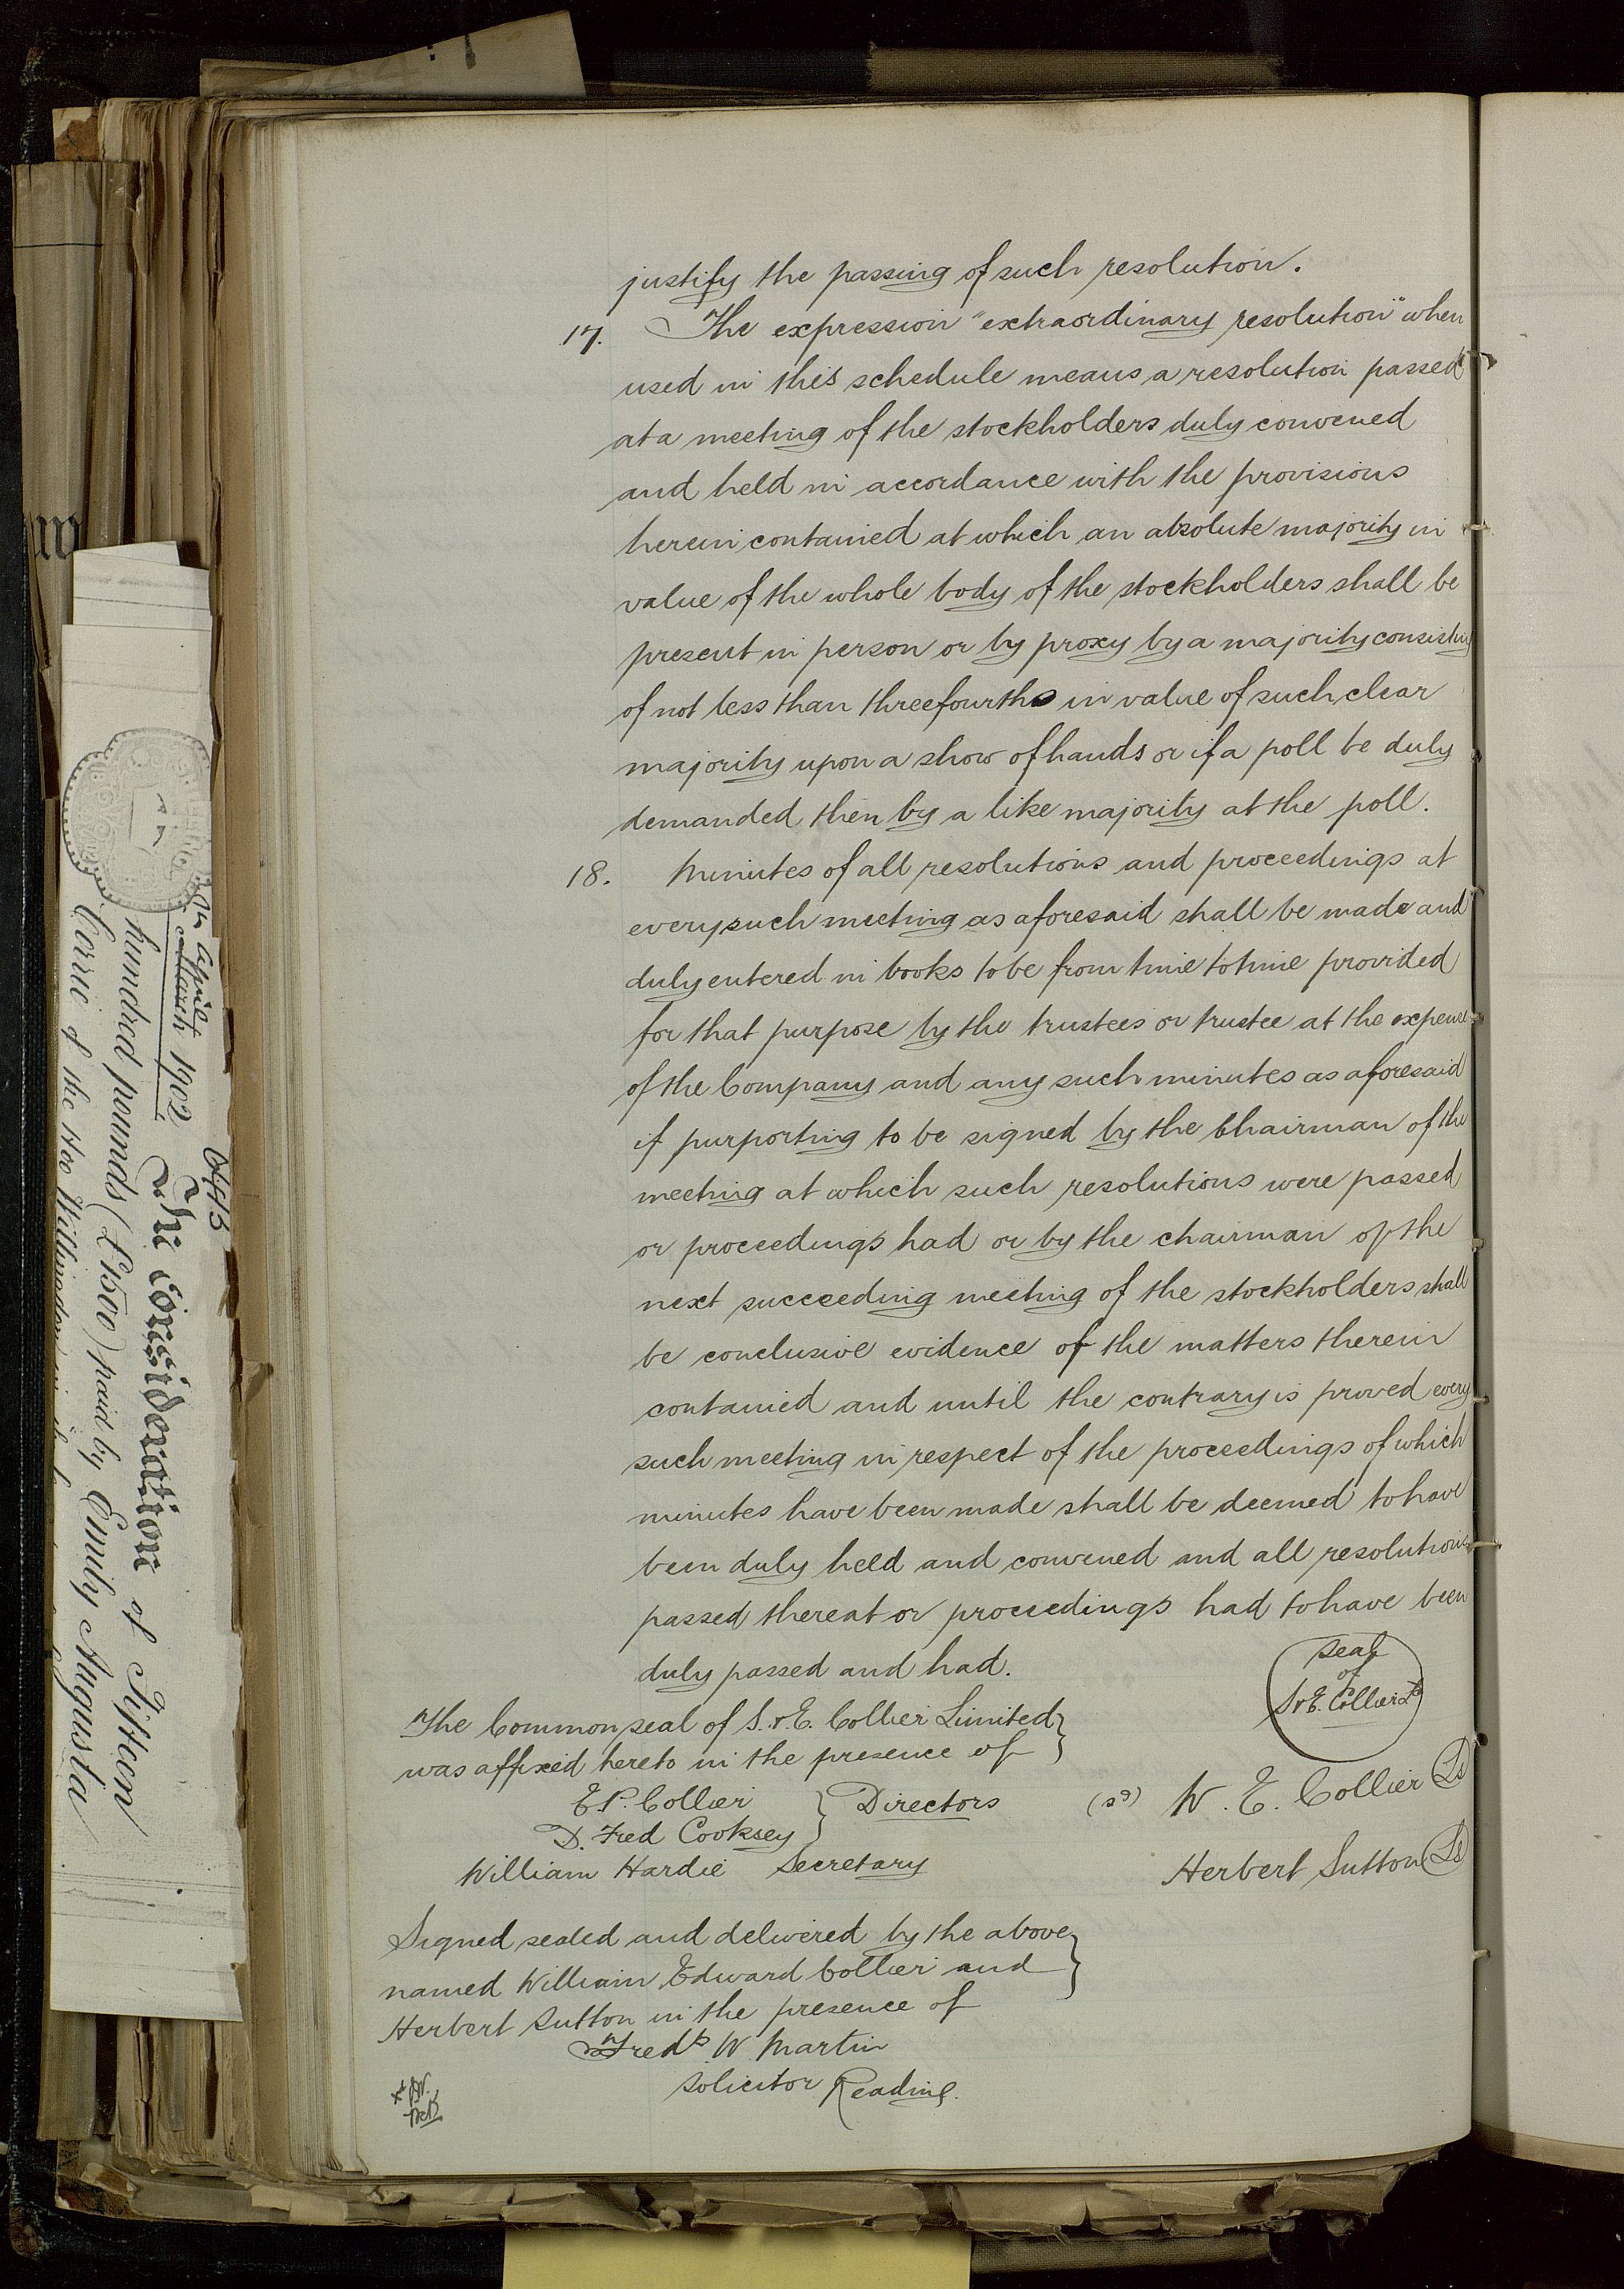 justify the passing of such resolution.
17. The expression "extraordinary resolution" when
used in this schedule means a resolution passed
at a meeting of the stockholders duly convened
and held in accordance with the provisions
herein contained at which an absolute majority in
value of the whole body of the stockholders shall be
present in person or by proxy by a majority consisting
of not less than threefourths in value of such clear
majority upon a show of hands or if a poll be duly
demanded then by a like majority at the poll.
18. Minutes of all resolutions and proceedings at
every such meeting as aforesaid shall be made and
duly entered in books to be from time to time provided
for that purpose by the trustees or trustee at the expense
of the Company and any such minutes as aforesaid
if purporting to be signed by the Chairman of the
meeting at which such resolutions were passed
or proceedings had or by the chairman of the
next succeeding meeting of the stockholders shall
be conclusive evidence of the matters therein
contained and until the contrary is proved every
such meeting in respect of the proceedings of which
minutes have been made shall be deemed to have
been duly held and convened and all resolutions
passed thereat or proceedings had to have been
duly passed and had.
Seal
of
S & E. Collier Ld
The Common seal of S. & E. Collier Limited
was affixed hereto in the presence of
E. P. Collier
D. Fred Cooksey
Directors
William Hardie Secretary
(sd) W. E. Collier LS
Herbert Sutton LS
Signed sealed and delivered by the above
named William Edward Collier and
Herbert Sutton in the presence of
Fredk W Martin
Solicitor Reading.
April
March 1902
The consideration of Fifteen
hundred pounds (£1500) paid by Emily Augusta